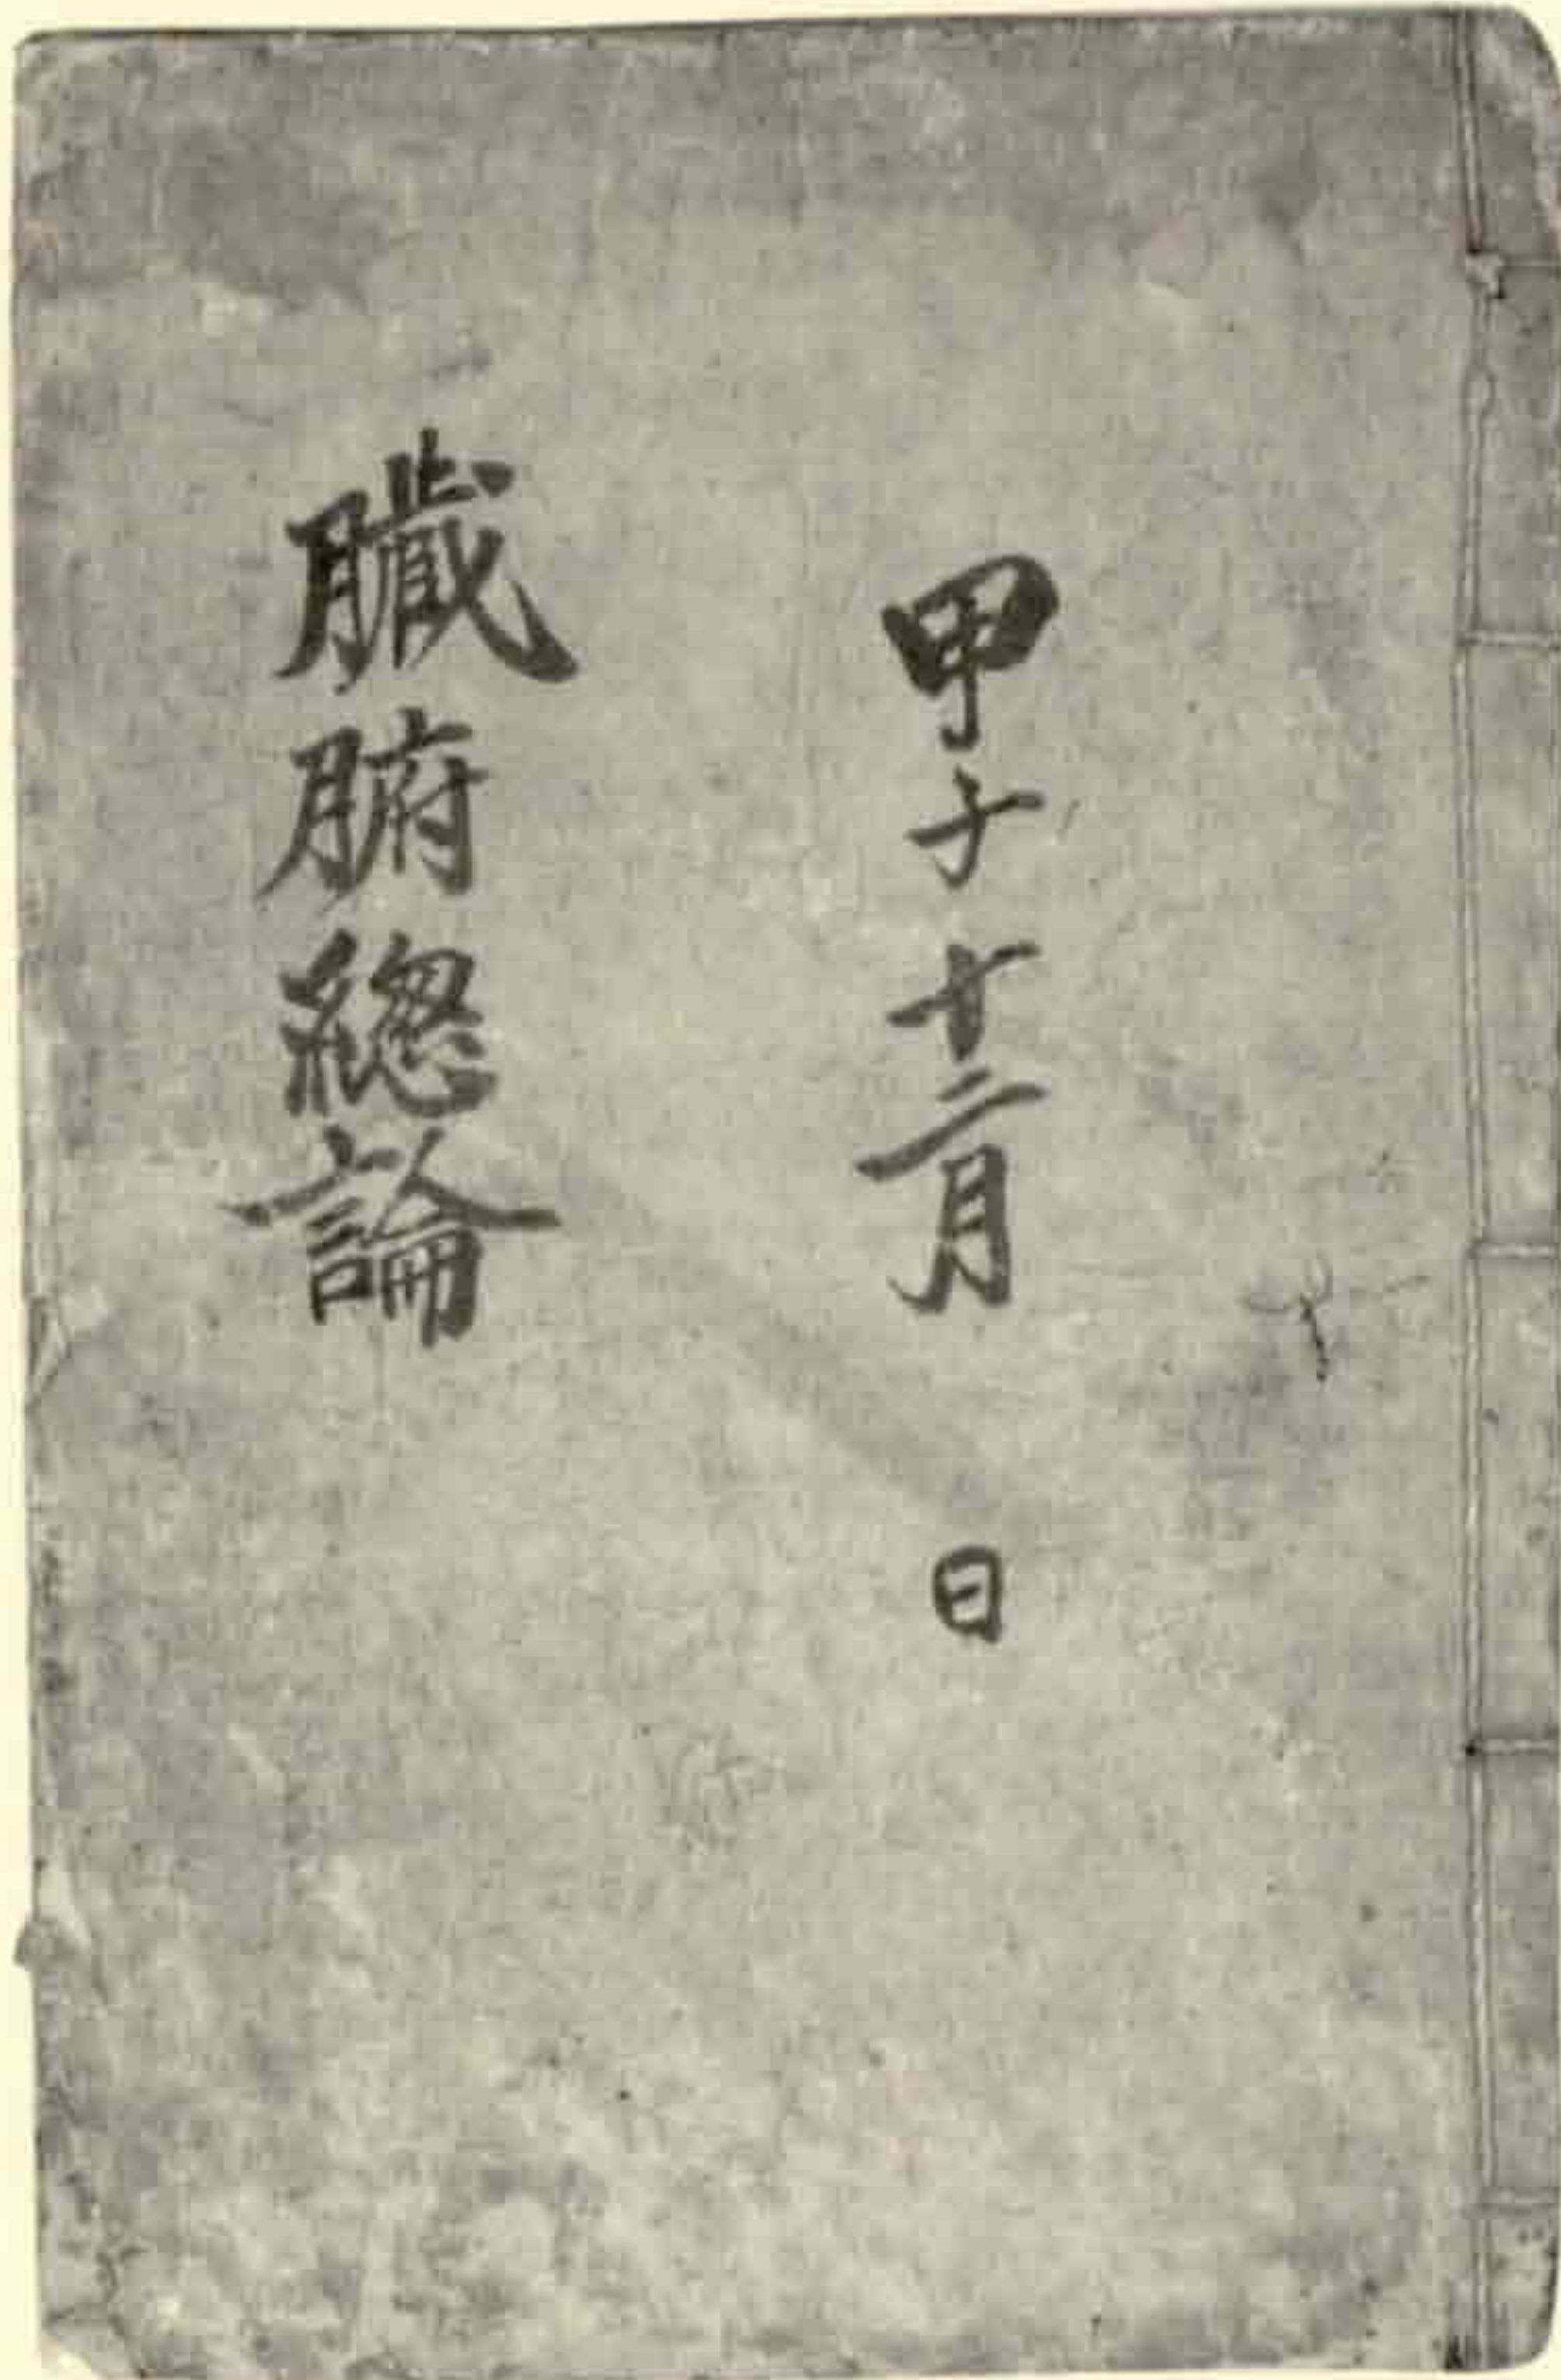 甲子十二月 日
臟腑總論